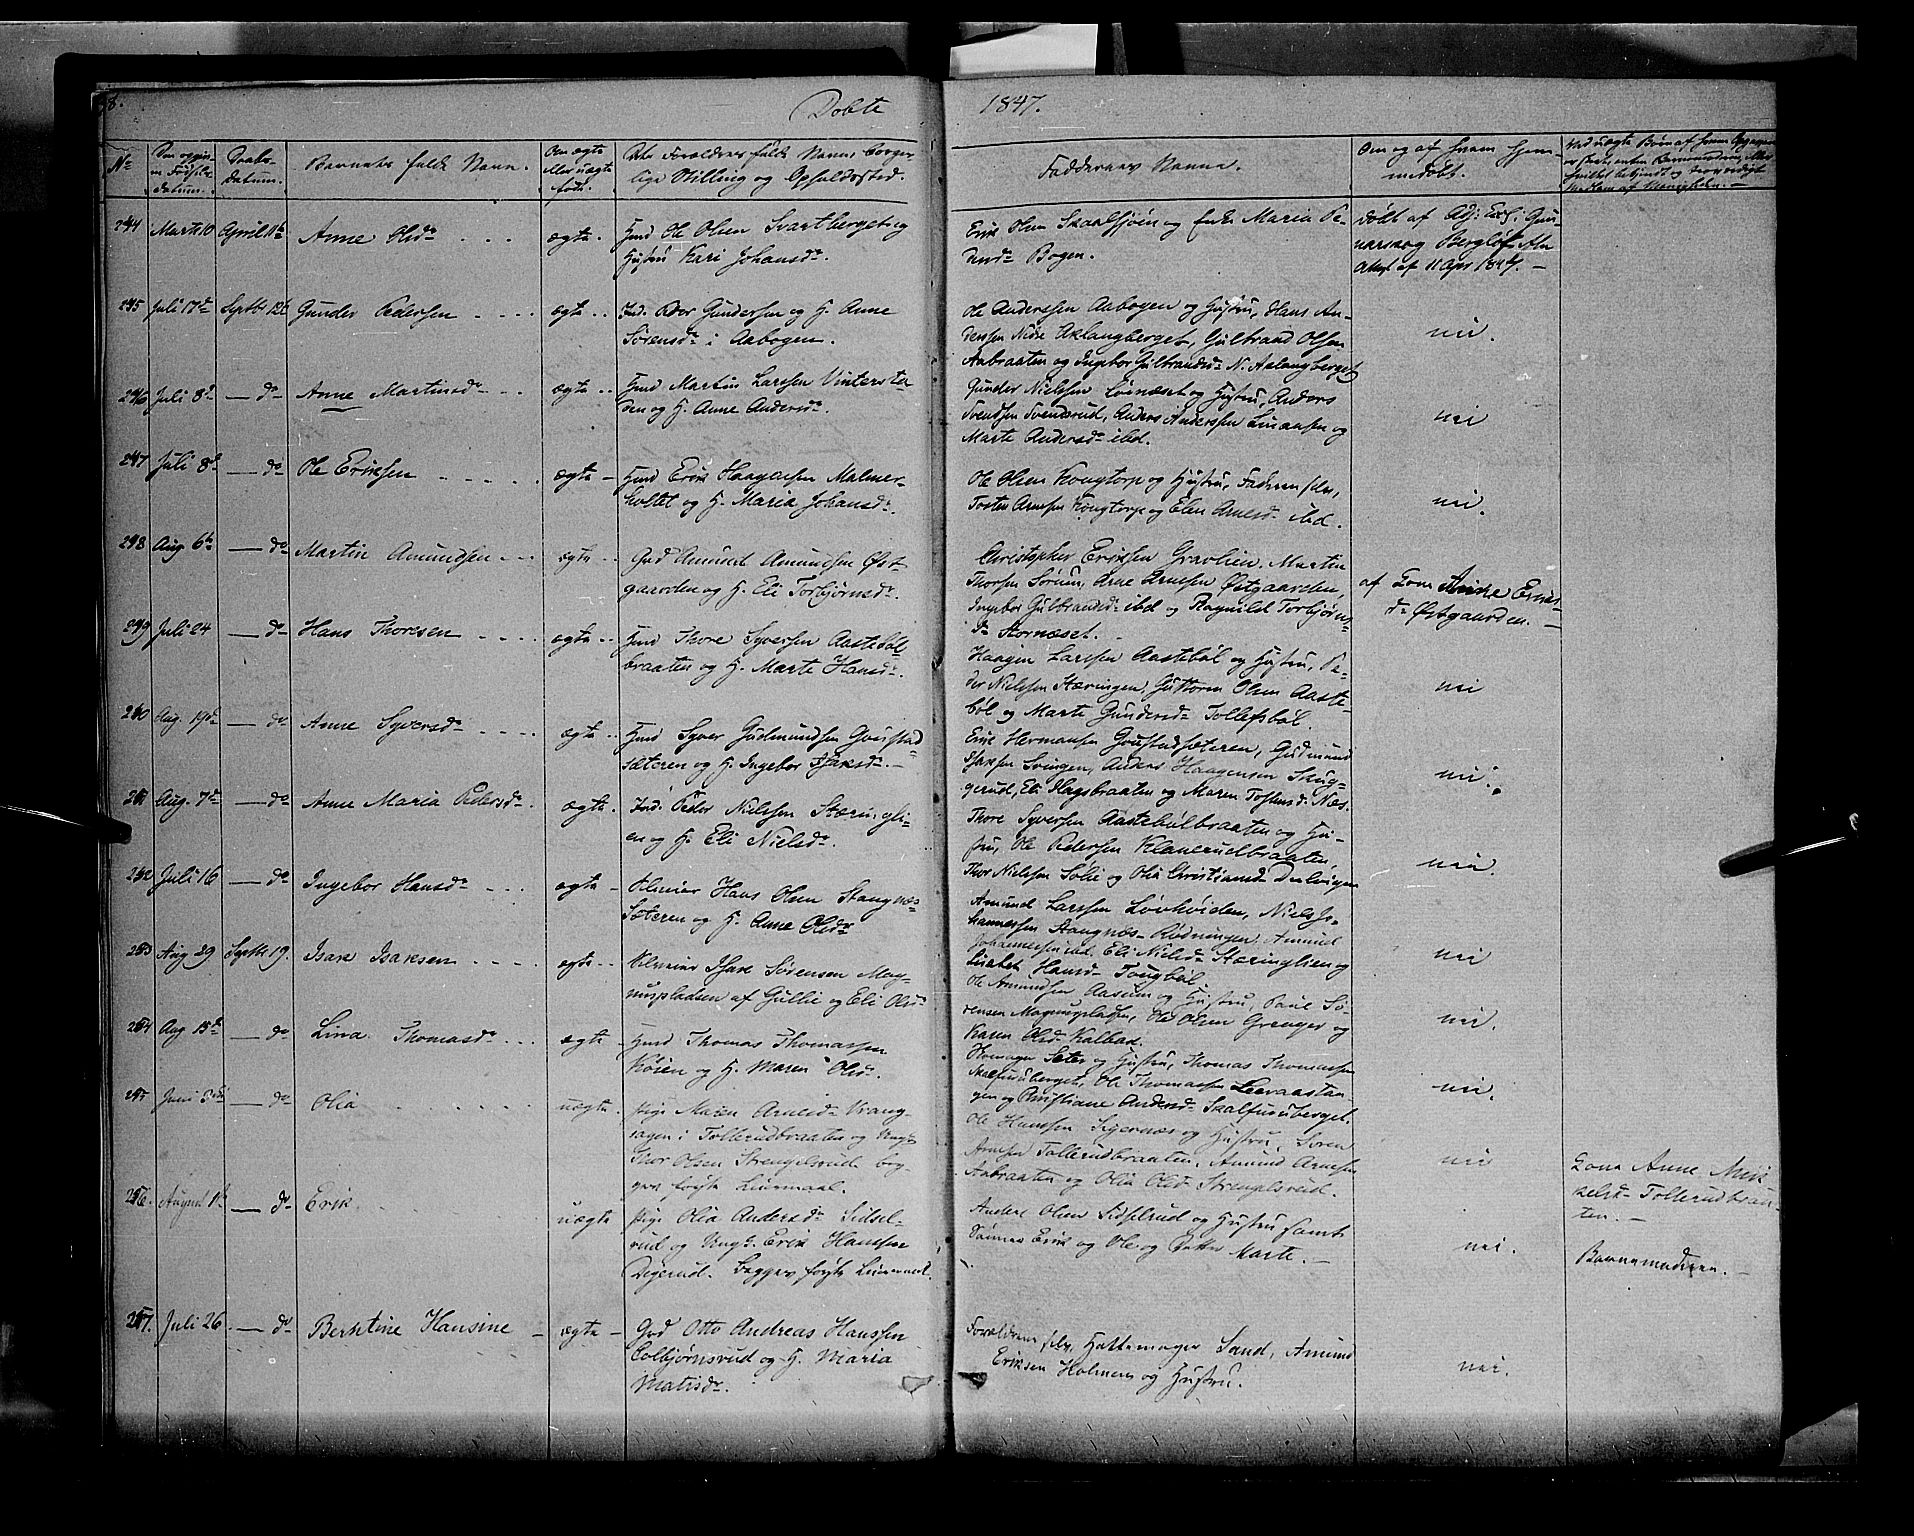 Døbte 1847.
No
Barnets fulde Navn.
Faddernes Navne.
244 Marts 10 April 11te Anne Olsdr ægte. Husmd Ole Olsen Svartberget og
Hustru Kari Johansdr
Erik Olsen Skaalsjøen og Enke Maria Pe-
dersdr Bogen.
døbt af Adj:
Attest af 11 Apr 1847. —
245 Juli 17de Septbr 12te Gunder Pedersen ægte Ind. Peder Gundersen og H. Anne
Sørensdr i Aabogen.
Ole Andersen Aabogen og Hustru, Hans An-
dersen Nedre Aklangberget, Gulbrand Olsen
Aabraaten og Ingebor Gulbrandsdr N. Aklangberget
nei.
246 Juli 8de — do Anne Martinsdr ægte Husmd Martin Larssen Vinterste-
den og H. Anne Andersdr.
Gunder Nielssen Løvnæset og Hustru, Anders
Svendsen Svendsrud, Anders Anderssen Linaasen og
Marte Andersdr ibd.
nei
247 Juli 8de — do Ole Eriksen ægte Husmd Erik Haagensen Malmer-
holtet og H. Maria Johansdr.
Ole Olsen Kongtorp og Hustru, Faderen selv,
Tosten Arnesen Kongtorp og Elen Arnesdr ibd.
nei.
248 Aug 6te — do Martin Amundsen ægte Grd Amund Amundsen Øst-
gaarden og H. Eli Torbjørnsdr.
Christopher Eriksen Gravlien, Martin
Thorsen Sørum, Arne Arnesen Østgaarden,
Ingebor Gulbrandsdr ibd og Ragnild Torbjørns-
dr Stornæset.
af Kone Anne Eriks-
dr Østgaarden.
249 Juli 24 — do Hans Thoresen ægte Husmd Thore Syversen Aastebøl-
braaten og H. Marte Hansdr.
Haagen Larssen Aastebøl og Hustru, Pe-
der Nielssen Stæringen, Guttorm Olsen Aaste-
bøl og Marte Gundersdr Tollefsbøl
nei
250 Aug. 19de — do Anne Syversdr ægte Husmd Syver Gudmundsen Goustad-
sæteren og H. Ingebor Isaksdr. —
Erik Hermansen Goustadsæteren, Gudmund
Isaksen Svingen, Anders Haagensen Skug-
gerud, Eli Hagsbraaten og Maren Tostensdr Næs.
nei.
251 Aug. 7de — do Anne Maria Pedersdr ægte. Ind. Peder Nielssen Stæringli-
en og H. Eli Nielsdr.
Thore Syversen Aastebølbraaten og Hu-
stru, Ole Pedersen Klanerudbraaten,
Thor Nielssen Solie og Olia Christiansdr Dalvigen
nei.
252 Juli 16 — do Ingebor Hansdr ægte Hans Olsen Stangnæs-
Sæteren og H. Anne Olsdr
Amund Larssen Løvhøiden, Niels Jo-
hannessen Stangnæs-Rødningen, Amund
Johannessen ibd. Eli Nielsdr Stæringlien og
Hansdr Tougbøl.
nei
253 Aug 29 Septbr 19. Isak Isaksen ægte Isak Sørensen Mag-
nuspladsen af Gullie og Eli Olsdr
Ole Amundsen Aasum og Hustru, Paul Sø-
rensen Magnuspladsen, Ole Olsen Grenger og
Karen Olsdr Kalbak.
nei.
254 Aug 15de — do Lina Thomasdr ægte Husmd Thomas Thomassen
Køien og H. Maren Olsdr.
Seter og Hustru, Thomas Thomassen
Skalfuruberget, Ole Thomassen
gen og Christiane Andersdr Skalfuruberget.
nei.
255 Juni 3die — do Olia uægte. Pige Maren Arnesdr Vrang-
sagen i Tollerudbraaten og Ungk.
Thor Olsen Strengelsrud beg-
ges første Leiermaal.
Ole Hanssen Sigernæs og Hustru, Søren
Arnesen Tollerudbraaten, Amund Arnesen
Aabraaten og Olia Olsdr Strengelsrud.
nei
Kone Anne Mik-
kelsdr Tollerudbraa-
ten. —
256. August 1te — do Erik. uægte Pige Olia Andersdr Sidsel-
rud og Ungk. Erik Hanssen
Digerud. Begges første Leiermaal.
Anders Olsen Sidselrud og Hustru samt
Sønner Erik og Ole og Datter Marte. —
nei.
Barnemoderen. —
257. Juli 26. — do Berntine Hansine — ægte — Grd Otto Andreas Hanssen
Colbjørnsrud og H. Maria
Matisdr.
Forældrene selv, Hattemager Sand, Amund
Eriksen Holmen og Hustru.
nei.